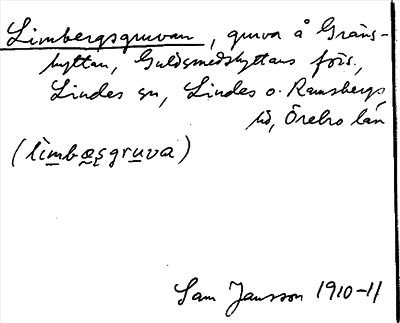 Limbergsgruvan, gruva å Gräns-
hyttan, Guldsmedshyttans förs.,
Lindes sn, Lindes o. Ramsbergs
hd, Örebro län
(limbæșgruva)
Sam Jansson 1910-11